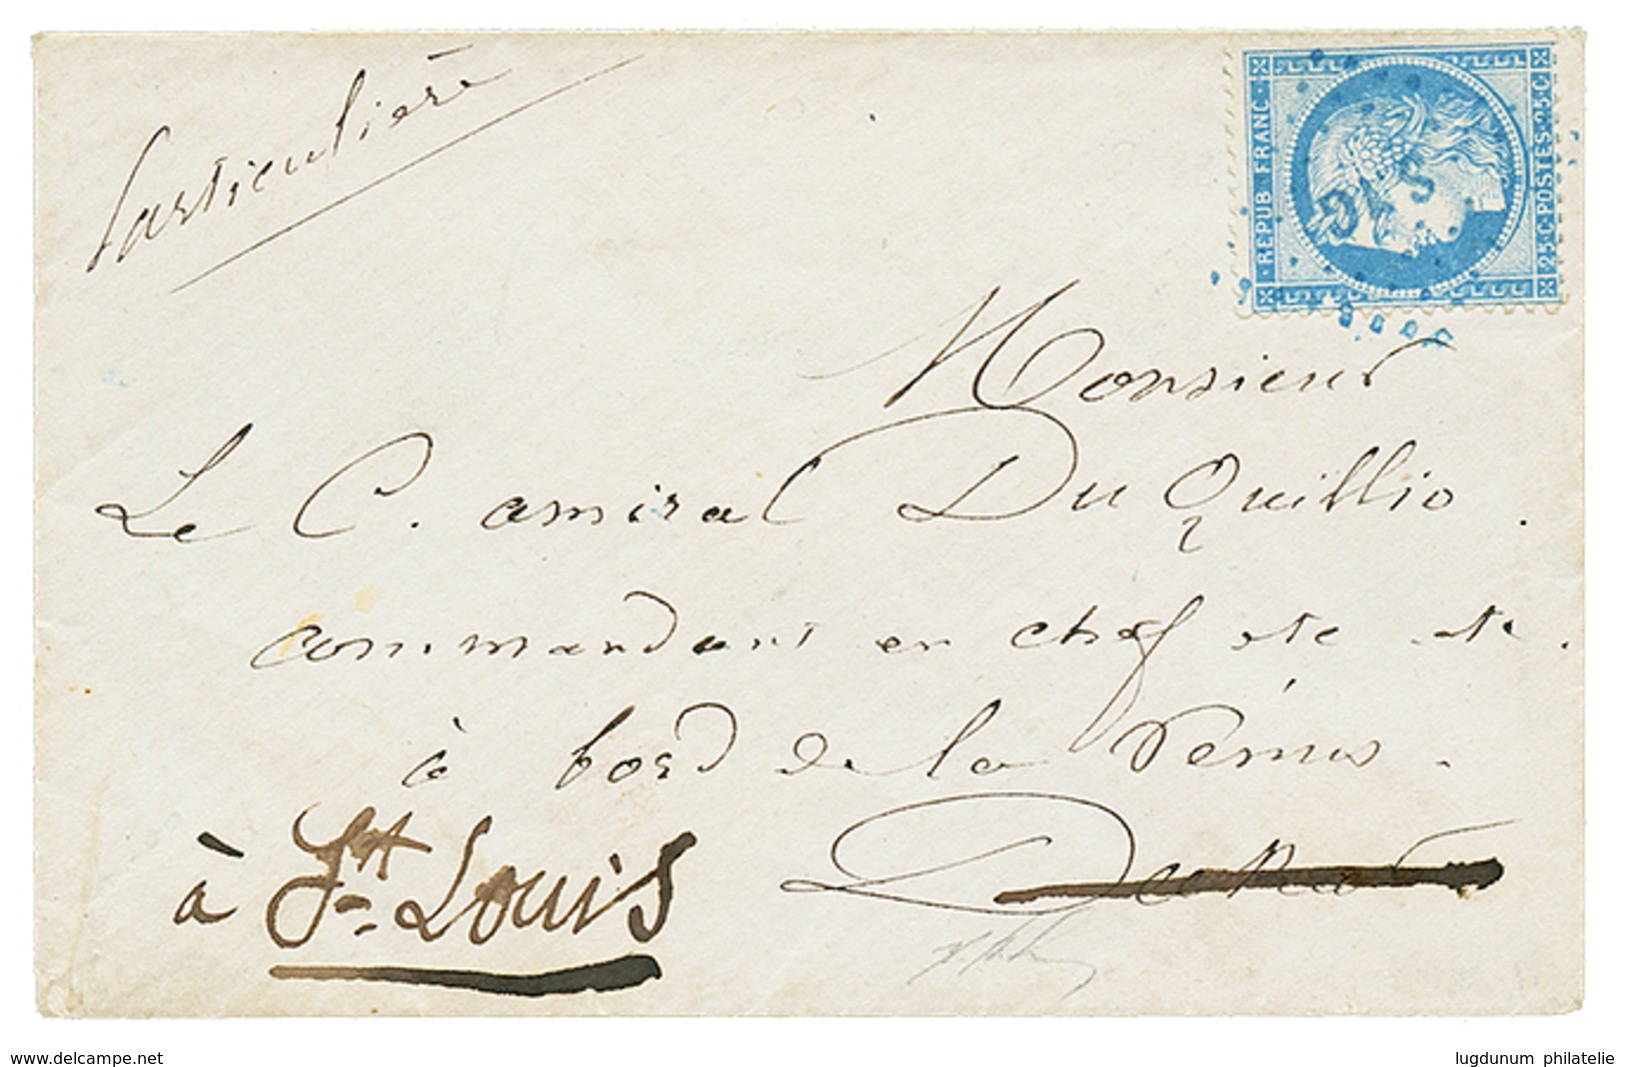 Particulière
REPUB FRANC
25 C POSTES 25 C
Monsieur
Le C. amiral Du Quillio
commandant en chef etc etc.
à bord de la Vénus.
à St. Louis
Dakar
www.delcampe.net
lugdunum philatelie